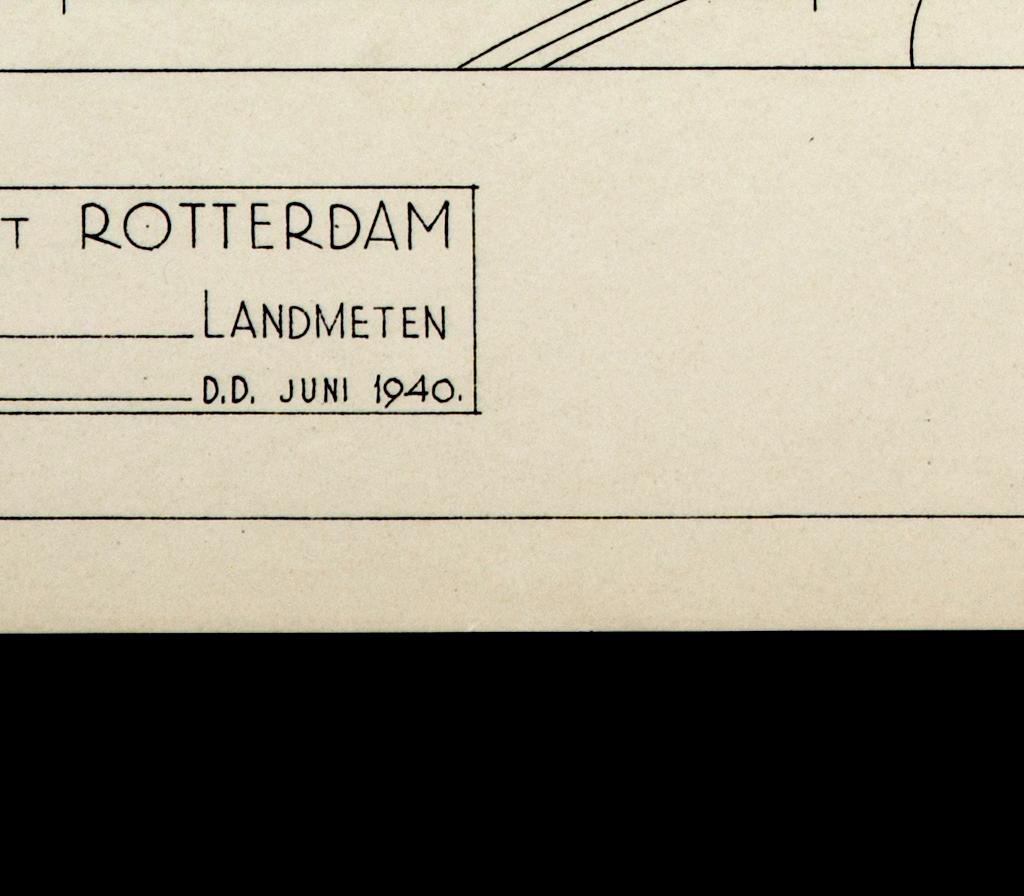 T ROTTERDAM
LANDMETEN
D.D. JUNI 1940.